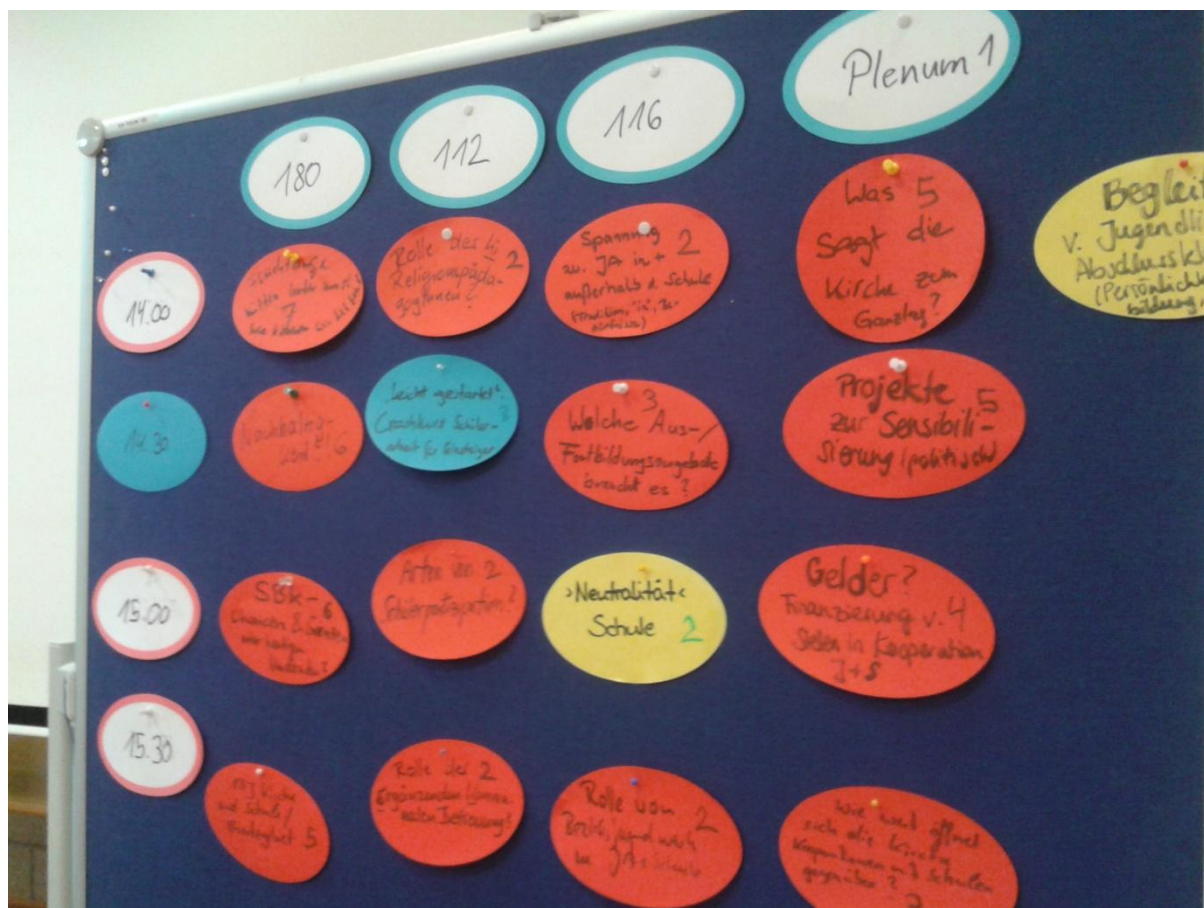 180
112
116
Plenum 1
14.00
7
Rolle des
Religionspäda-
goglnnen? 2
2
zw. JA in +
außerhalb d. Schule
Was 5
sagt die
Kirche zum
Ganztag?
Begleit
v. Jugendli
Abschlussk
(Persönlich
bildung
14.30
6
"Leicht gestartet":
Crashkurs Schüler-
arbeit für Einsteiger
3
Welche Aus-/
Fortbildungsangebote
braucht es?
Projekte 5
zur Sensibili-
sierung (politisch)
15.00
SBk- 6
Chancen &
Arten von 2
Schülerpartizipation?
>Neutralität<
Schule 2
Gelder?
Finanzierung v. 4
Stellen in Kooperation
J+S
15.30
und Schule/
5
Rolle der 2
Ergänzenden kommu-
nalen Betreuung?
Rolle vom 2
Bezirksjugendwerk
JA + Schule
Wie weit öffnet
sich die Kirche
Kooperationen mit Schulen
gegenüber?
2